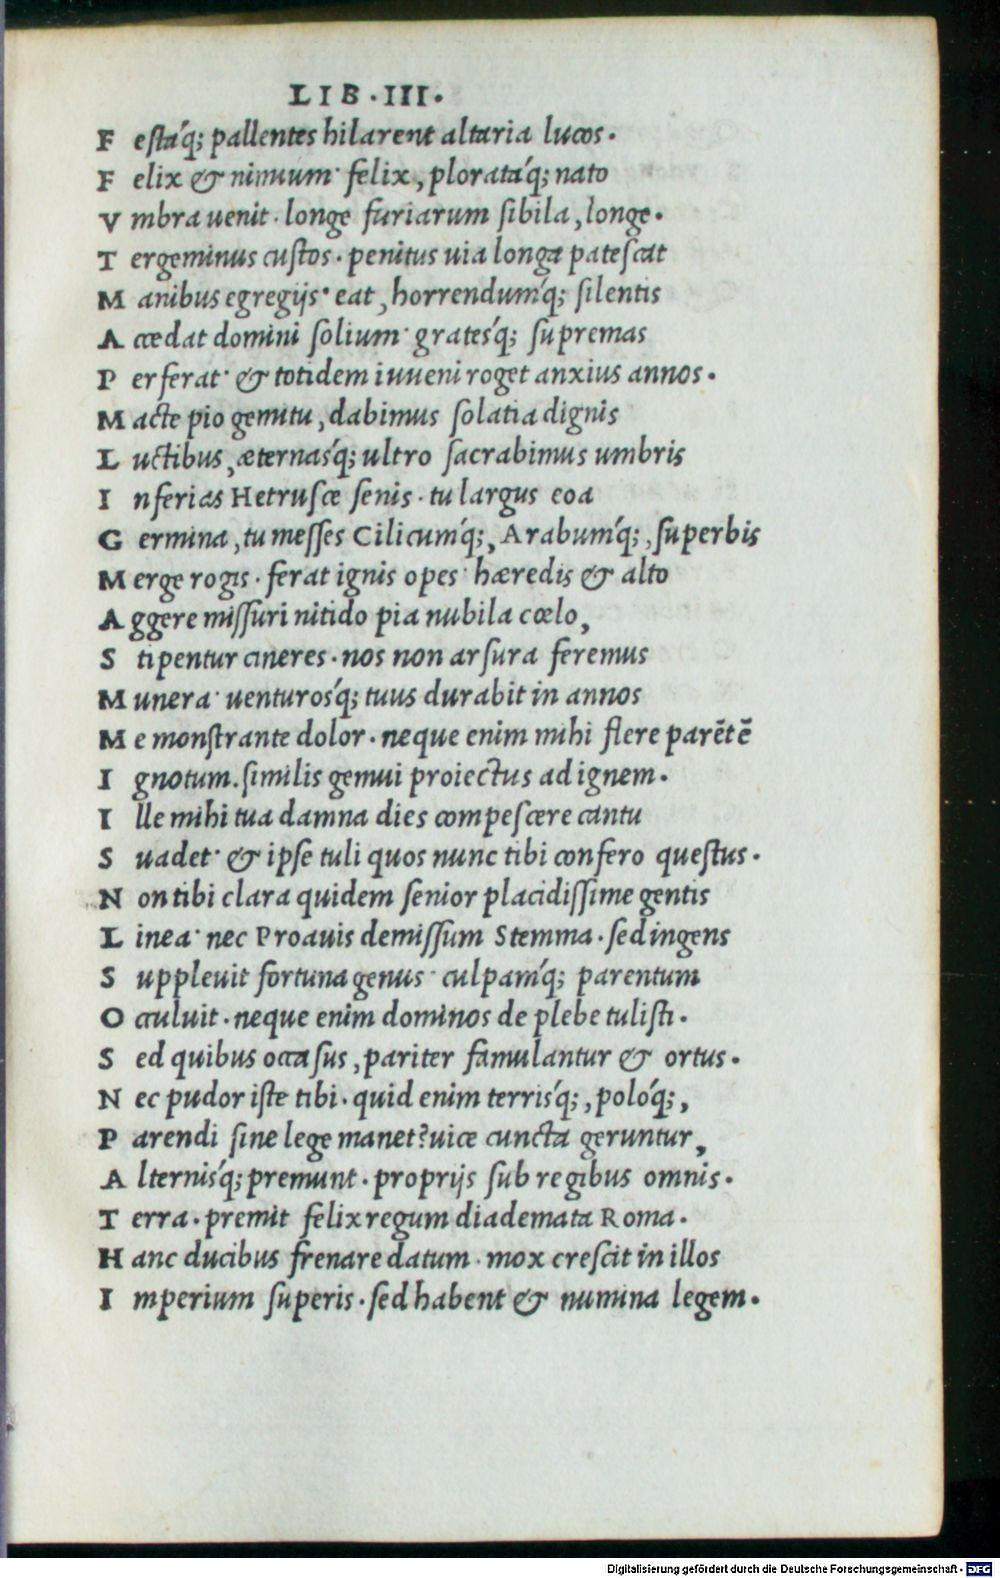 LIB.III.
F estáq; pallentes hilarent altaria lucos.
F elix & nimium felix, ploratáq; nato
V mbra uenit. longe furiarum sibila, longe.
T ergeminus custos. penitus uia longa patescat
M anibus egregijs. eat, horrendumq́; silentis
A ccedat domini solium. gratesq́; supremas
P erferat. & totidem iuueni roget anxius annos.
M acte pio gemitu, dabimus solatia dignis
L uctibus, æternasq́; ultro sacrabimus umbris
I nferias Hetrusce senis. tu largus eoa
G ermina, tu messes Cilicumq́;, Arabumq́;, superbis
M erge rogis. ferat ignis opes hæredis & alto
A ggere missuri nitido pia nubila cœlo,
S tipentur cineres. nos non arsura feremus
M unera. uenturosq́; tuus durabit in annos
M e monstrante dolor. neque enim mihi flere parētē
I gnotum. similis gemui proiectus ad ignem.
I lle mihi tua damna dies compescere cantu
S uadet. & ipse tuli quos nunc tibi confero questus.
N on tibi clara quidem senior placidissime gentis
L inea. nec Proauis demissum Stemma. sed ingens
S uppleuit fortuna genus. culpamq́; parentum
O cculuit. neque enim dominos de plebe tulisti.
S ed quibus occasus, pariter famulantur & ortus.
N ec pudor iste tibi. quid enim terrisq́;, poloq́;,
P arendi sine lege manet? uice cuncta geruntur,
A lternisq́; premunt. proprijs sub regibus omnis.
T erra. premit felix regum diademata Roma.
H anc ducibus frenare datum. mox crescit in illos
I mperium superis. sed habent & numina legem.
Digitalisierung gefördert durch die Deutsche Forschungsgemeinschaft - DFG